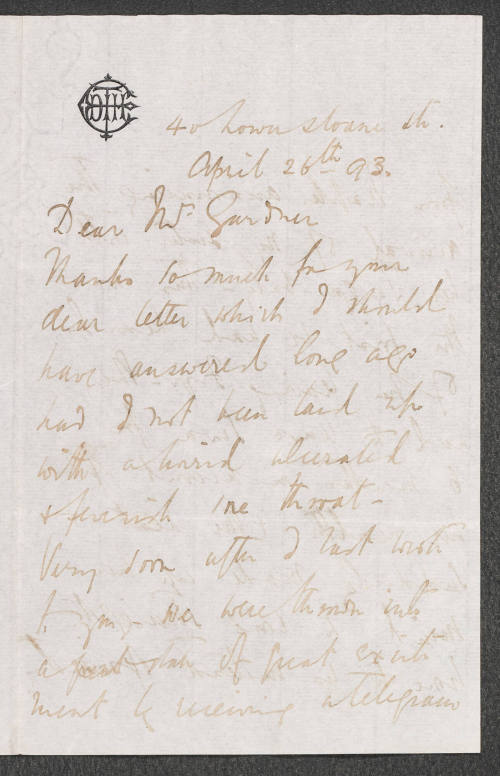 40 Lower Sloane St.
April 26th 93.
Dear Mrs Gardner
Thanks so much for your
dear letter which I should
have answered long ago
had I not been laid up
with a horrid ulcerated
& feverish sore throat –
Very soon after I last wrote
to you – we were thrown into
a great state of great excite
ment by receiving a telegram